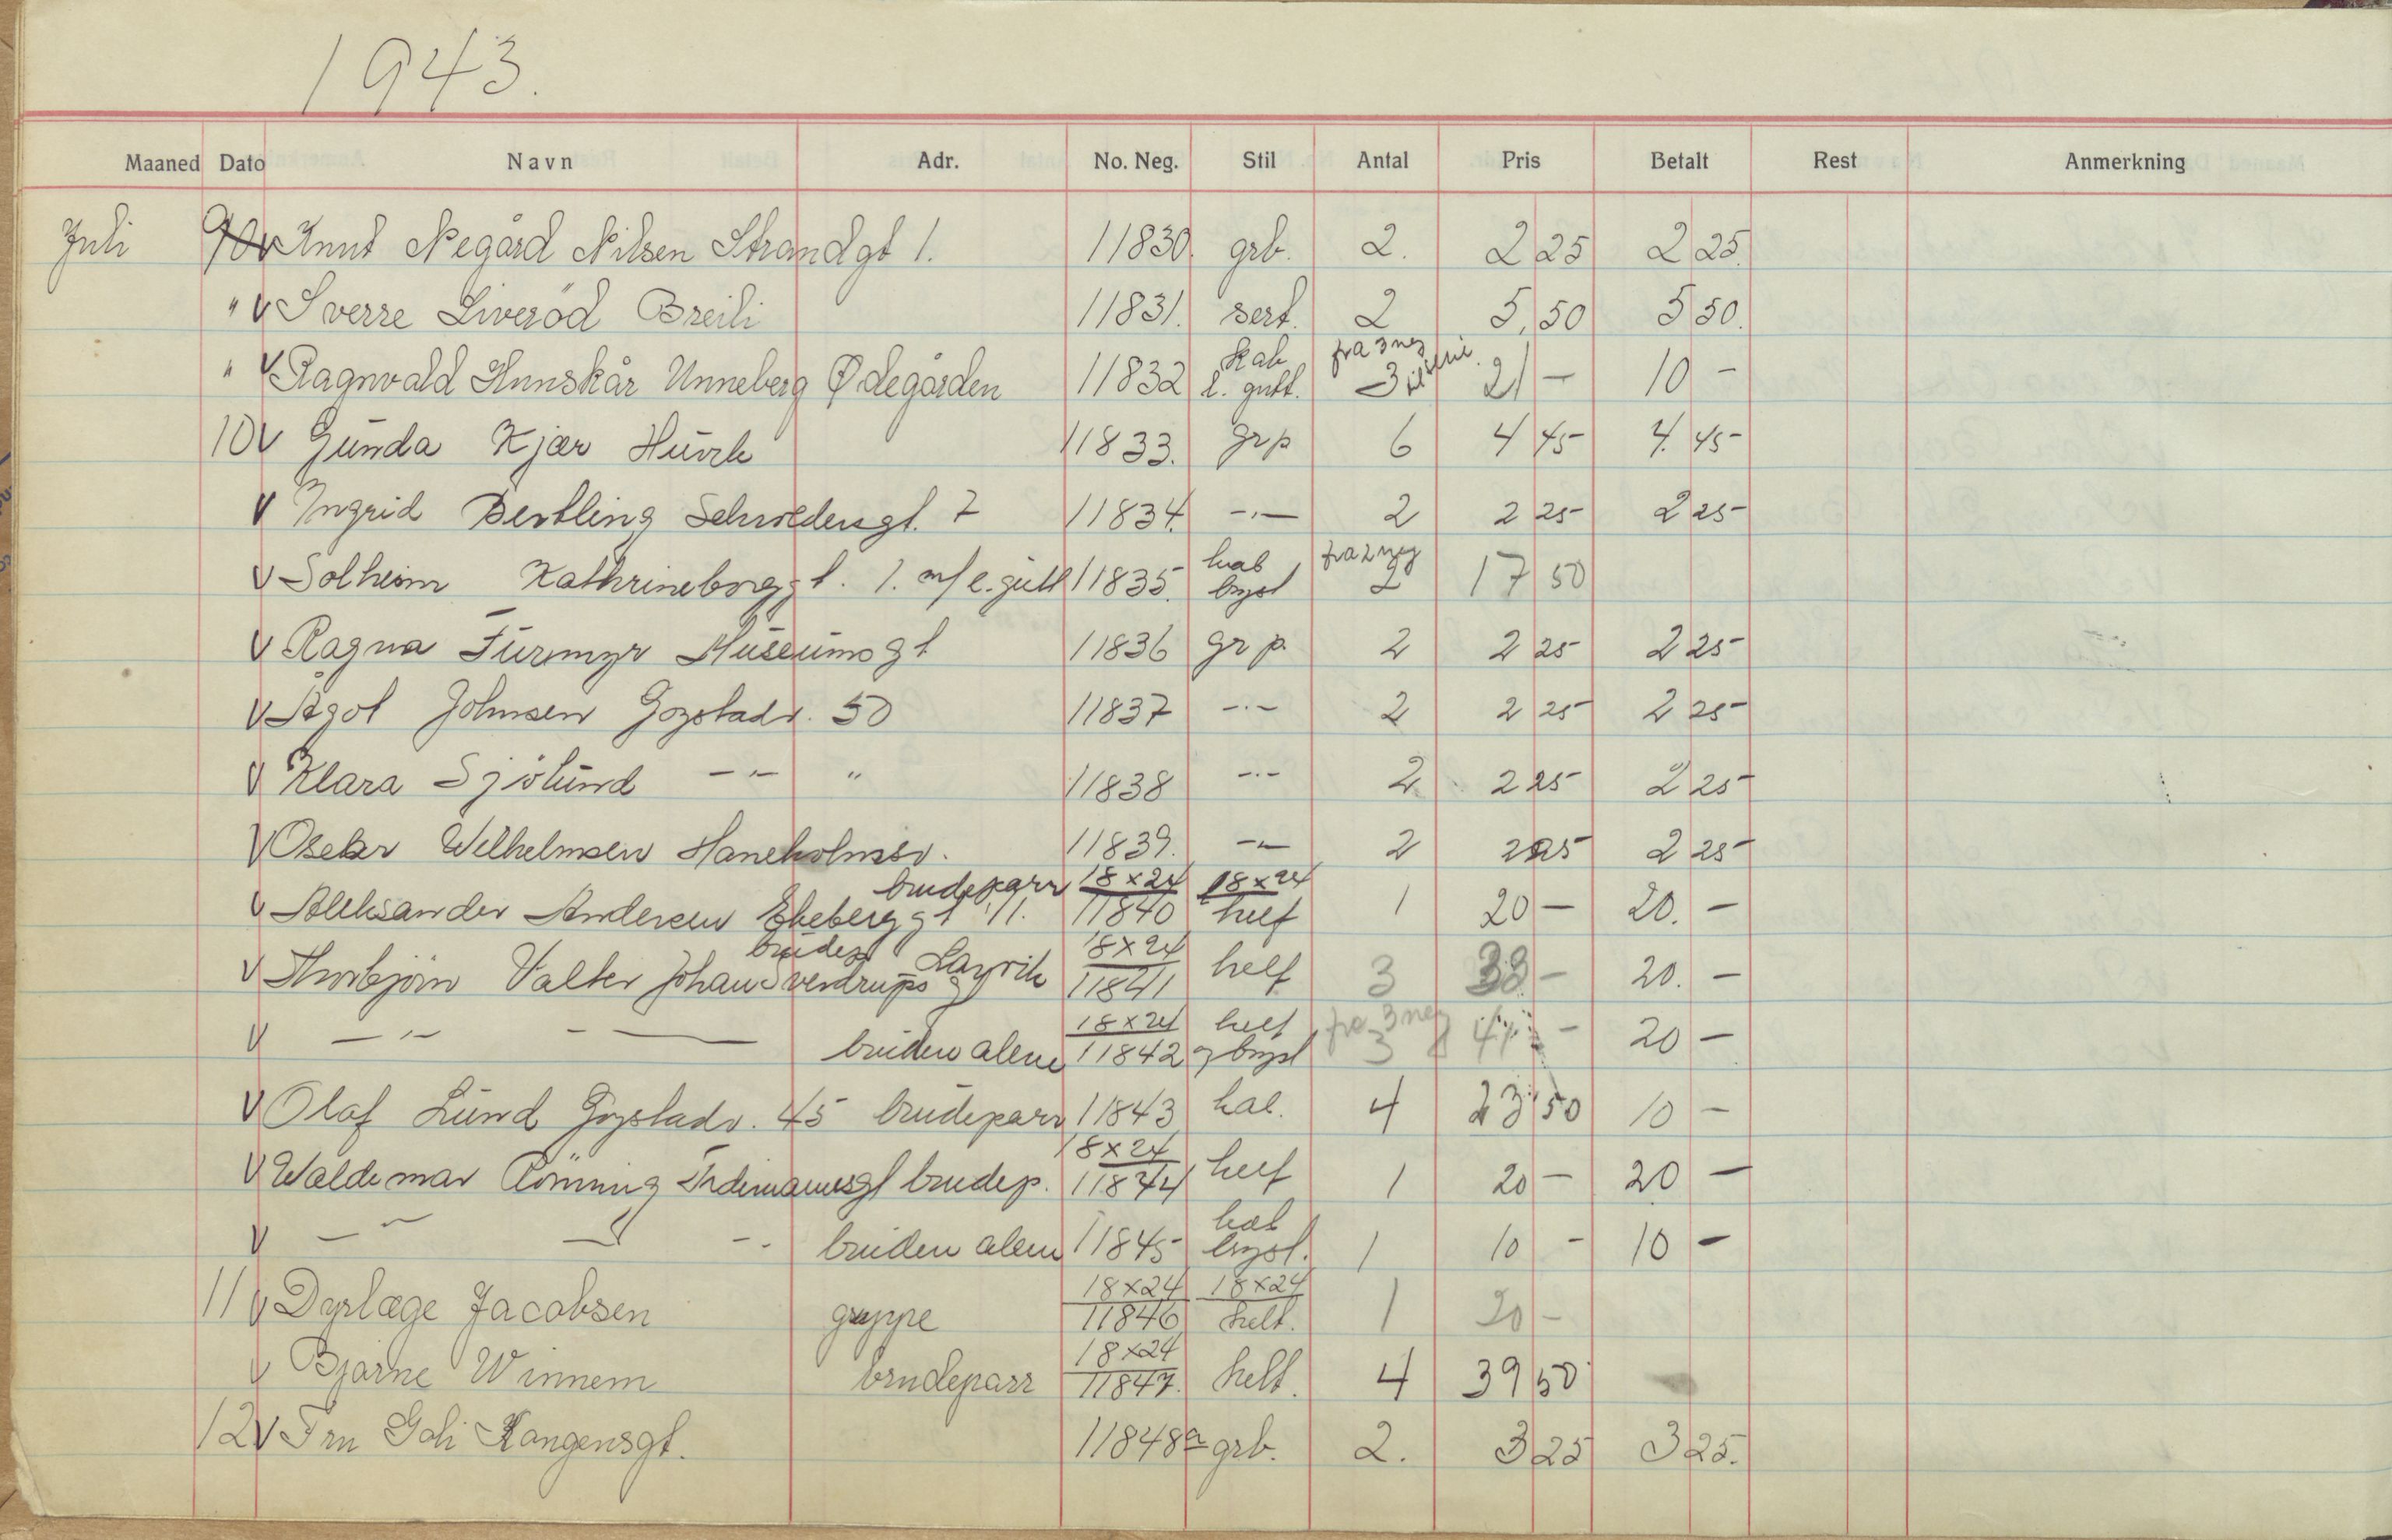 1943.
Maaned Dato Navn Adr. No. Neg. Stil Antal Pris Betalt Rest Anmerkning
Juli 9 v Knut Negård Nilsen Strandgt 1. 11830. grb. 2. 2 25 2 25.
" v Sverre Liveröd Breili 11831. sert. 2 5,50 5 50.
" v Ragnvald Hunskår Unneberg Ødegården 11832 kab l. gutt. fra 3 neg 3 21 — 10 -
10 v Gunda Kjær 11833. grp 6 4 45- 4. 45-
v Ingrid Bertling 7 11834. -.- 2 2 25- 2 25-
v Solheim Kathrineborggt. 1. m/ l. gutt 11835. kab bryst fra 2 neg 2 17 50
v Ragna Furmyr Museumsgt 11836 grp. 2 2 25- 2 25-
v Ågot Johnsen Gogstadv. 50 11837 -.- 2 2 25- 2 25-
v Klara Sjölund -"- " 11838 -.- 2 2 25- 2 25-
v Oskar Wilhelmsen Haneholmsv. 11839. -"- 2 2 25 2 25-
v Aleksander Andersen Ekeberggt 11. brudeparr 18x24 11840 18x24 helf 1 20 — 20. -
v Thorbjörn Valter Johan Sverdrupsg brudep Larvik 18x24 11841 helf 3 33 - 20. -
v -"- - — bruden alene 18x24 11842 helf og bryst fra 3 neg 3 20 -
v Olaf Lund Gogstadv. 45 brudeparr 11843 kab. 4 23 50 10 -
v Waldemar Rönning Tidemannsgt brudep. 18x24 11844 helf 1 20 - 20 -
v -"- -"- -- bruden alene 11845- kab bryst. 1 10 - 10 -
11 v Dyrlæge Jacobsen gruppe 18x24 11846 18x24 helt. 1 20 -
v Bjarne Winnem brudeparr 18x24 11847. helt. 4 39 50
12 v Fru Goli Kongensgt. 11848a grb. 2. 3 25 3 25.